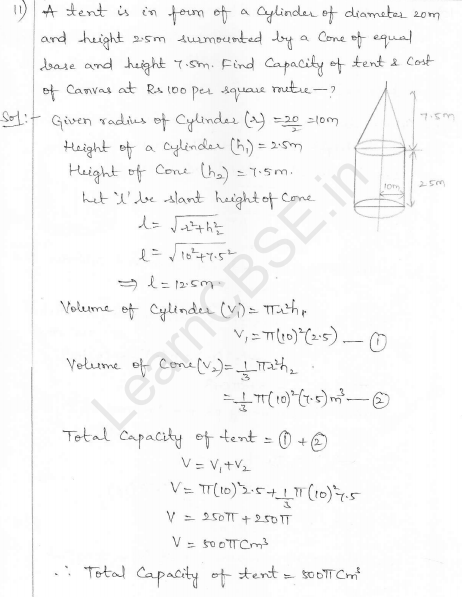 11) A tent is in form of a cylinder of diameter 20m
and height 2.5m surmounted by a cone of equal
base and height 7.5m. Find Capacity of tent & Cost
of Canvas at Rs 100 per square metre —?
Sol:- Given radius of cylinder (r) = 20/2 = 10m
Height of a cylinder (h₁) = 2.5m
Height of Cone (h₂) = 7.5m.
Let 'l' be slant height of Cone
l = √(r²+h₂²)
l = √(10²+7.5²)
⇒ l = 12.5m.
Volume of Cylinder (V₁) = πr²h₁
V₁ = π(10)²(2.5) — ①
Volume of Cone (V₂) = 1/3 πr²h₂
= 1/3 π(10)²(7.5)m³ — ②
Total Capacity of tent = ① + ②
V = V₁+V₂
V = π(10)²2.5 + 1/3 π(10)²7.5
V = 250π + 250π
V = 500π Cm³
∴ Total Capacity of tent = 500π Cm³
7.5m
10m
2.5m
LearnCBSE.in